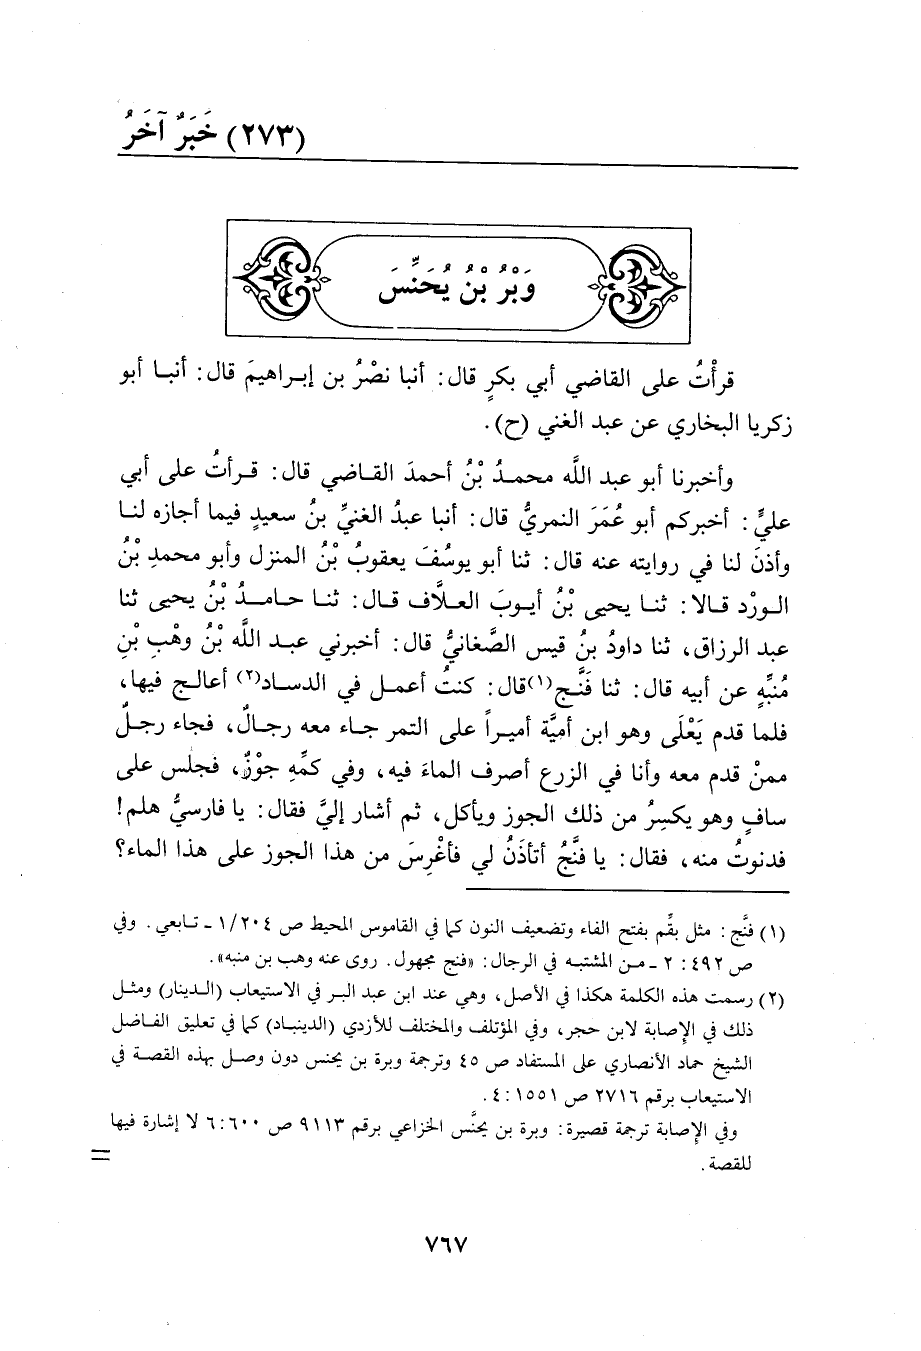 (٢٧٣) خَبَرٌ آخَرُ
وَبْرُ بْنُ يُحَنِّسَ
قرأْتُ على القاضي أبي بكرٍ قال: أنبا نصْرُ بن إبراهيمَ قال: أنبا أبو
زكريا البخاري عن عبد الغني (ح).
وأخبرنا أبو عبد اللَّه محمدُ بْنُ أحمدَ القاضي قال: قرأتُ على أبي
عليٍّ: أخبركم أبو عُمَرَ النمريُّ قال: أنبا عبدُ الغنيِّ بنُ سعيدٍ فيما أجازه لنا
وأذنَ لنا في روايته عنه قال: ثنا أبو يوسُفَ يعقوبُ بْنُ المنزل وأبو محمدِ بْنُ
الورْد قالا: ثنا يحيى بْنُ أيوبَ العلاَّف قال: ثنا حامدُ بْنُ يحيى ثنا
عبد الرزاق، ثنا داودُ بنُ قيس الصَّغانيُّ قال: أخبرني عبد اللَّه بْنُ وهْبِ بْنِ
مُنبِّهٍ عن أبيه قال: ثنا فَنَّج(١)قال: كنتُ أعمل في الدساد(٢) أعالج فيها،
فلما قدم يَعْلَى وهو ابن أميَّة أميراً على التمر جاء معه رجالٌ، فجاء رجلٌ
ممنْ قدم معه وأنا في الزرع أصرف الماءَ فيه، وفي كمِّهِ جوْزٌ، فجلس على
ساقٍ وهو يكسِرُ من ذلك الجوز ويأكل، ثم أشار إليَّ فقال: يا فارسيُّ هلم!
فدنوتُ منه، فقال: يا فنَّجُ أتأذَنُ لي فأغْرِسَ من هذا الجوز على هذا الماء؟
(١) فنَّج: مثل بقِّم بفتح الفاء وتضعيف النون كما في القاموس المحيط ص ٢٠٤/١ ـ تابعي. وفي
ص ٤٩٢: ٢ ـ من المشتبه في الرجال: «فنج مجهول. روى عنه وهب بن منبه».
(٢) رسمت هذه الكلمة هكذا في الأصل، وهي عند ابن عبد البر في الاستيعاب (الدينار) ومثل
ذلك في الإصابة لابن حجر، وفي المؤتلف والمختلف للأزدي (الدينباد) كما في تعليق الفاضل
الشيخ حماد الأنصاري على المستفاد ص ٤٥ وترجمة وبرة بن يحنس دون وصل بهذه القصة في
الاستيعاب برقم ٢٧١٦ ص ١٥٥١: ٤.
وفي الإصابة ترجمة قصيرة: وبرة بن يحنَّس الخزاعي برقم ٩١١٣ ص ٦٠٠: ٦ لا إشارة فيها
للقصة.
=
٧٦٧